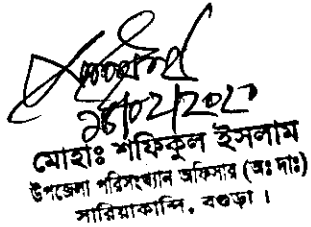 মোহাঃ শফিকুল ইসলাম
উপজেলা পরিসংখ্যান অফিসার (অঃ দাঃ)
সারিয়াকান্দি, বগুড়া ।